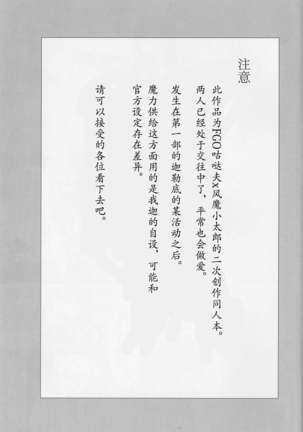 注意
此作品为FGO咕哒夫x风魔小太郎的二次创作同人本。
两人已经处于交往中了，平常也会做爱。
发生在第一部的迦勒底的某活动之后。
魔力供给这方面用的是我迦的自设，可能和
官方设定存在差异。
请可以接受的各位看下去吧。